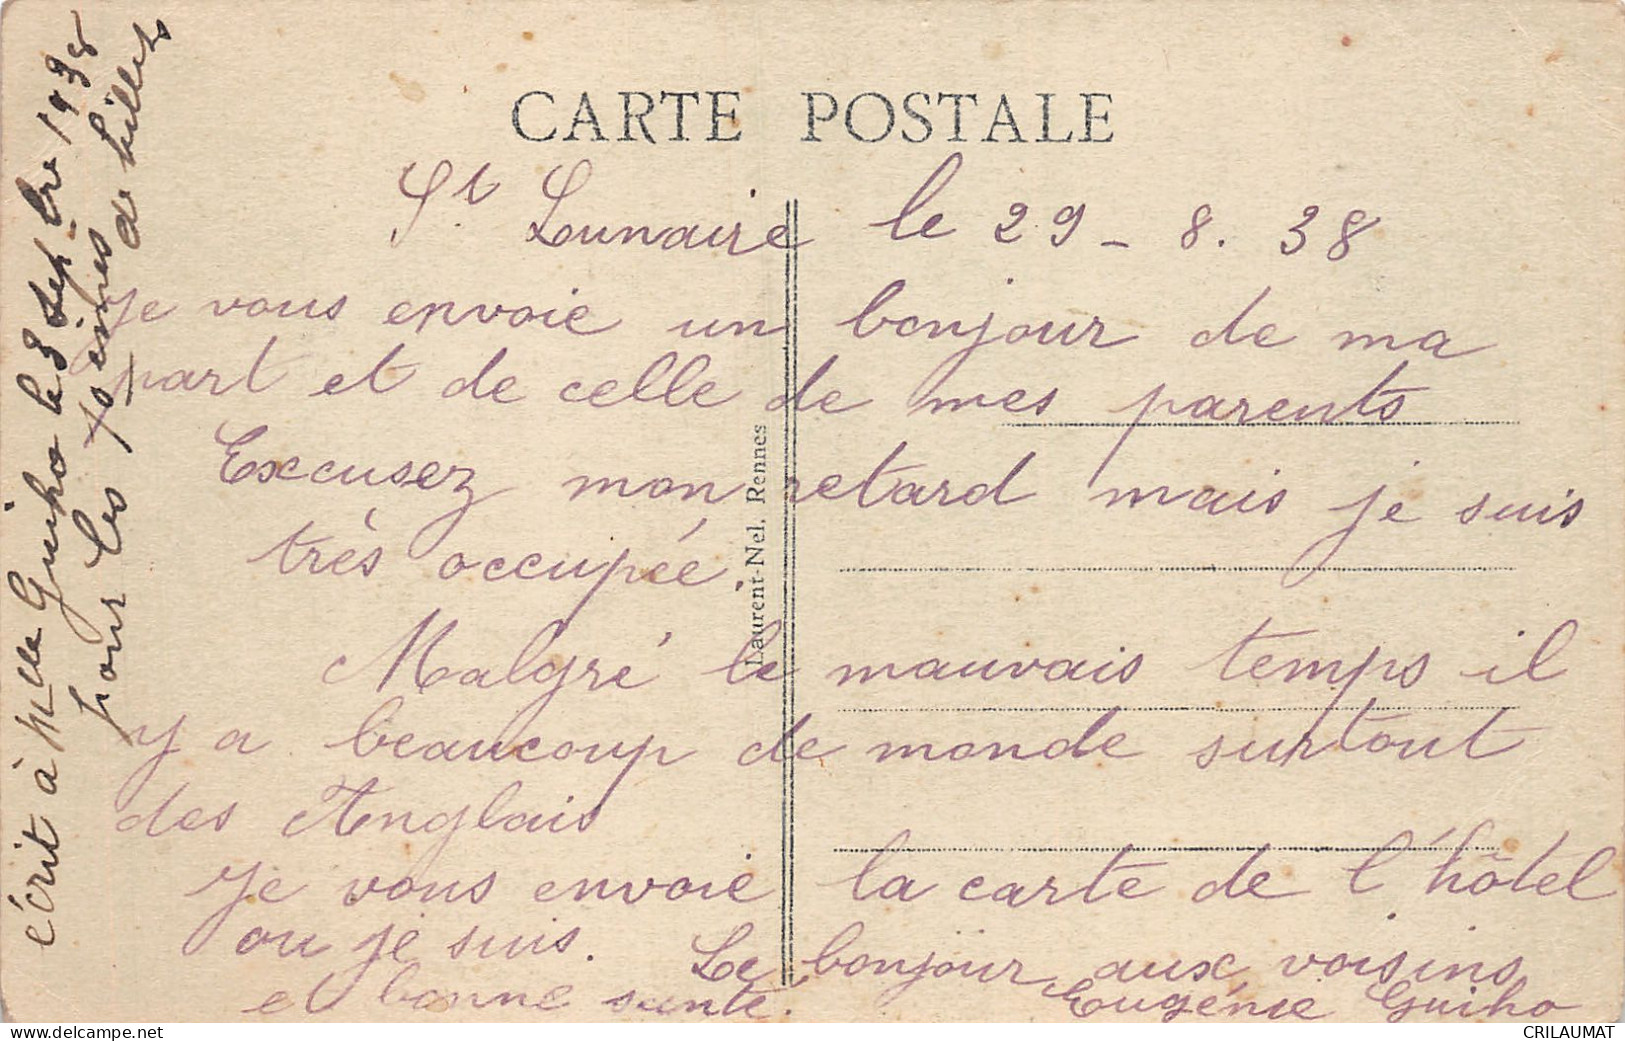 CARTE POSTALE
St Lunaire le 29-8.38
Je vous envoie un bonjour de ma
part et de celle de mes parents
Excusez mon retard mais je suis
très occupée.
Malgré le mauvais temps il
y a beaucoup de monde surtout
des Anglais
Je vous envoie la carte de l'hôtel
ou je suis. Le bonjour aux voisins
et bonne sante. Eugénie Guiho
écrit à Mlle Guiho le 3 sept bre 1938
pour les de billets
Laurent-Nel, Rennes
CRILAUMAT